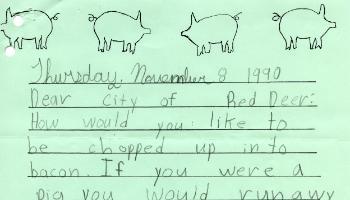 Thursday, November 8 1990
Dear City of Red Deer:
How would you like to
be chopped up in to
bacon. If you were a
pig you would runawy